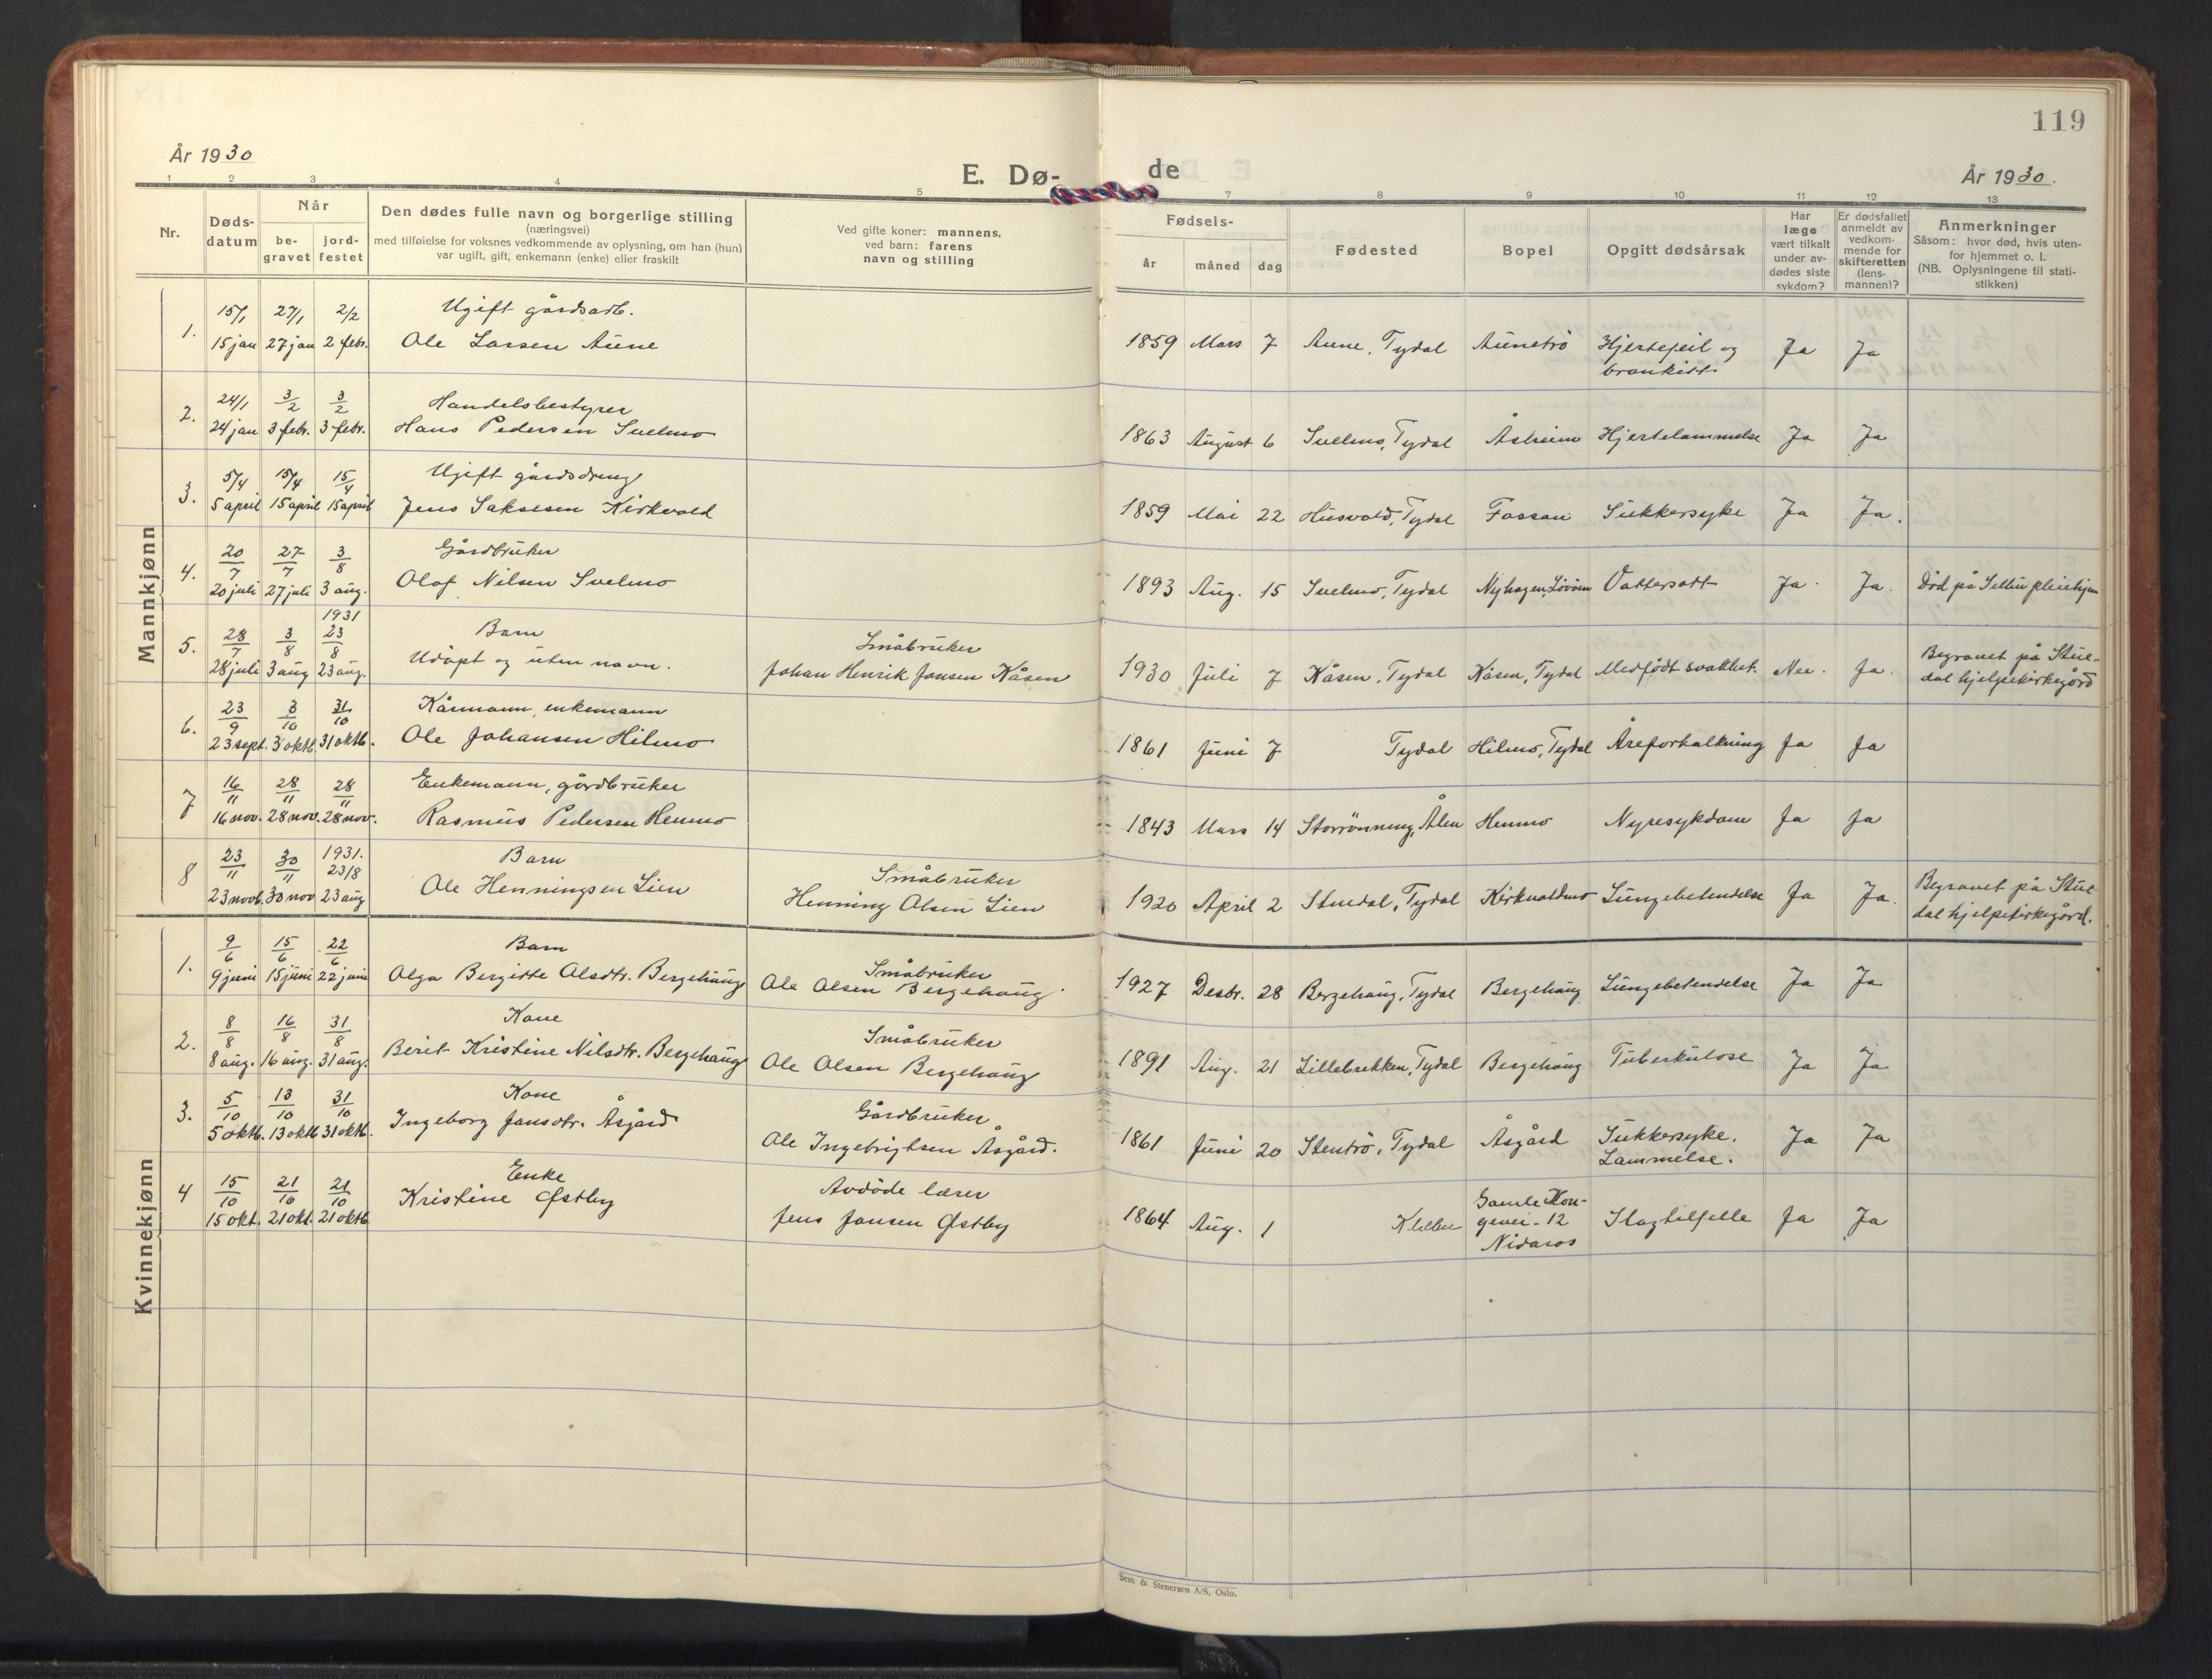 119
År 1930
E. Dø-
de
År 1930.
1 2 3 4 5 7 8 9 10 11 12 13
Nr.
Døds-
datum
Når
be-
gravet
jord-
festet
Den dødes fulle navn og borgerlige stilling
(næringsvei)
med tilføielse for voksnes vedkommende av oplysning, om han (hun)
var ugift, gift, enkemann (enke) eller fraskilt
Ved gifte koner: mannens,
ved barn: farens
navn og stilling
Fødsels-
år måned dag
Fødested
Bopel
Opgitt dødsårsak
Har
læge
vært tilkalt
under av-
dødes siste
sykdom?
Er dødsfallet
anmeldt av
vedkom-
mende for
skifteretten
(lens-
mannen)?
Anmerkninger
Såsom: hvor død, hvis uten-
for hjemmet o. l.
(NB. Oplysningene til stati-
stikken)
Mannkjønn
15/1 27/1 2/2 Ugift gårdsarb.
1. 15 jan 27 jan 2 febr. Ole Larsen Aune 1859 Mars 7 Aune, Tydal Aunetrø Hjertefeil og Ja Ja
bronkitt
24/1 3/2 3/2 Handelsbestyrer
2. 24 jan 3 febr. 3 febr. Hans Pedersen Svelmo 1863 August 6 Svelmo, Tydal Åsheim Hjertelammelse Ja Ja
5/4 15/4 15/4 Ugift gårdsdreng
3. 5 april 15 april 15 april Jens Saksesen Kirkvold 1859 Mai 22 Husvold, Tydal Fossan Sukkersyke Ja Ja.
20/7 27/7 3/8 Gårdbruker
4. 20 juli 27 juli 3 aug. Olaf Nilsen Svelmo 1893 Aug. 15 Svelmo, Tydal Nyhagen, Løvøen Vattersott Ja. Ja. Død på Selbu pleiehjem
1931
28/7 3/8 23/8 Barn Småbruker Begravet på Stue-
5. 28 juli 3 aug 23 aug. Udøpt og uten navn. Johan Henrik Jonsen Kåsen 1930 Juli 7 Kåsen, Tydal Kåsen, Tydal Medfødt svakhet. Nei. Ja. dal hjelpekirkegård
23/9 3/10 31/10 Kårmann, enkemann
6. 23 sept. 3 oktb. 31 oktb. Ole Johansen Hilmo 1861 Juni 7 Tydal Hilmo, Tydal Åreforkalkning Ja Ja
16/11 28/11 28/11 Enkemann, gårdbruker
7 16 nov. 28 nov. 28 nov. Rasmus Pedersen Henmo 1843 Mars 14 Storrønning, Ålen Henmo Nyresykdom Ja Ja
1931.
23/11 30/11 23/8 Barn Småbruker Begravet på Stue
8 23 novb. 30 nov 23 aug Ole Henningsen Lien Henning Olsen Lien 1920 April 2 Stuedal, Tydal Kirkvoldmo Lungebetendelse Ja Ja. dal hjelpekirkegård.
Kvinnekjønn
9/6 15/6 22/6 Barn Småbruker
1. 9 juni 15 juni 22 juni Olga Bergitte Olsdtr. Bergehaug Ole Olsen Bergehaug 1927 Desbr. 28 Bergehaug, Tydal Bergehaug Lungebetendelse Ja Ja
8/8 16/8 31/8 Kone Småbruker
2. 8 aug. 16 aug. 31 aug. Berit Kristine Nilsdtr. Bergehaug Ole Olsen Bergehaug 1891 Aug. 21 Lillebrekken, Tydal Bergehaug Tuberkulose Ja Ja
5/10 13/10 31/10 Kone Gårdbruker
3. 5 oktb. 13 oktb 31 oktb. Ingeborg Jonsdtr. Åsgård Ole Ingebrigtsen Åsgård. 1861 Juni 20 Stentrø, Tydal Åsgård Sukkersyke. Ja Ja
Lammelse.
15/10 21/10 21/10 Enke Avdøde lærer Gamle Kon-
4 15 okt. 21 okt. 21 oktb Kristine Østby Jens Jonsen Østby 1864 Aug. 1 Klæbu gevei - 12 Slagtilfelle Ja Ja
Nidaros
Sem & Stenersen A/S, Oslo.